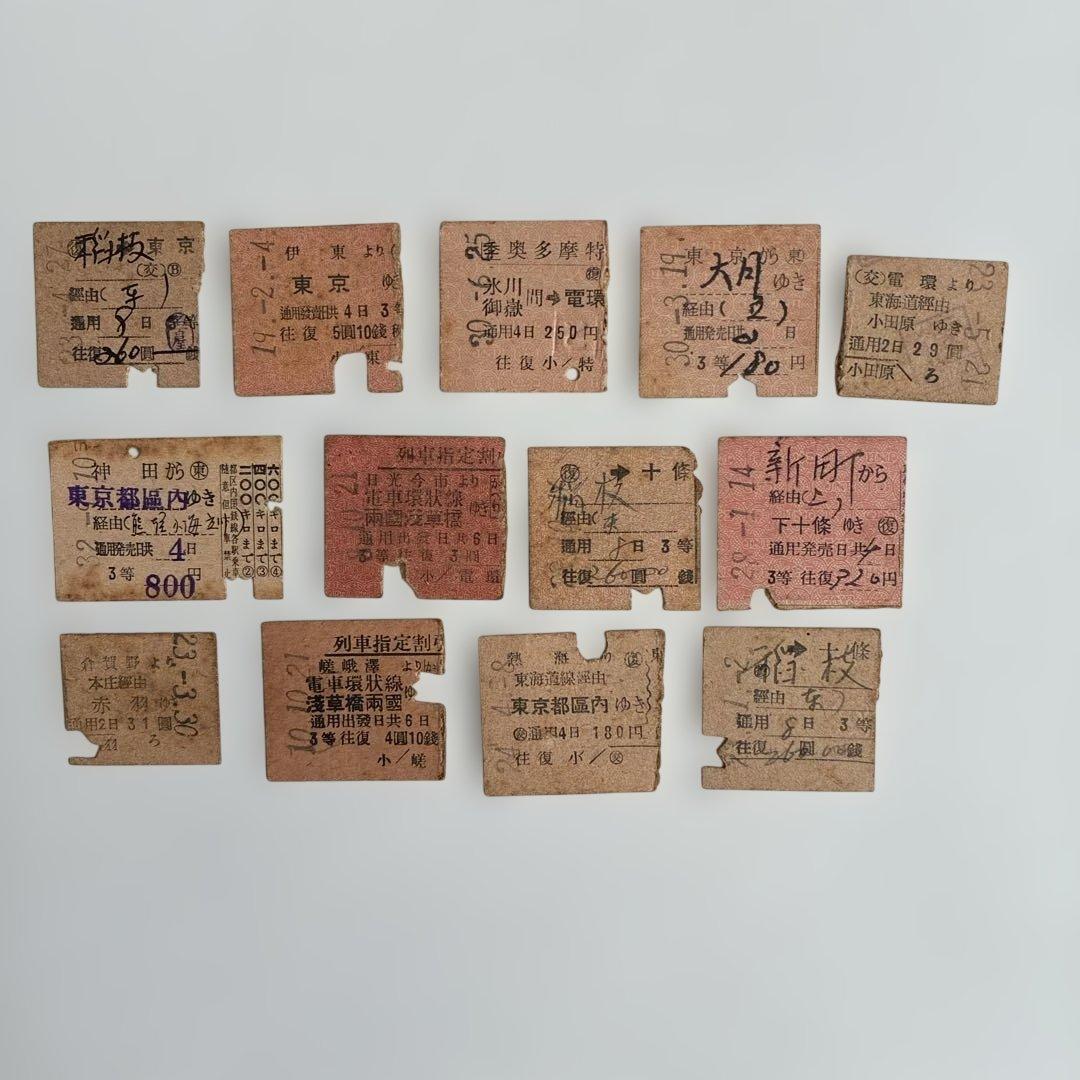 東京
(交)
経由(東)
通用8日
往復260圓 銭
伊東より
東京ゆき
通用發賣日共4日3等
往復5圓10銭
19.-2.-4
季奥多摩特
氷川
御嶽
間
電環
通用4日250円
往復小/特
30.-6.25
東京から
大月ゆき
経由(立)
通用発売日共2日
3等180円
30.-3.19
(交)電環より
東海道経由
小田原ゆき
通用2日29圓
小田原/ろ
23.-5.21
神田から(東)
東京都區内ゆき
経由(
通用発売日共4日
3等
800円
都区内国鉄線各駅乗車
随意但
禁止
二〇〇キロまで②
四〇〇キロまで③
六〇〇キロまで④
列車指定割
日光今市より
電車環狀線
兩國淺草橋ゆき
通用出發日共6日
3等往復3圓
小/電環
十條
枝
経由(東
通用8日3等
往復260圓00銭
新町から
経由(上)
下十條ゆき(復)
通用発売日共4日
3等往復320円
28.-1.14
倉賀野より
本庄経由
赤羽ゆき
通用2日31圓
ろ
23.-3.30
列車指定割引
嵯峨澤より
電車環狀線
淺草橋兩國
通用出發日共6日
3等往復4圓10銭
小/嵯
10.10.21
熱海より(復)
東海道線経由
東京都區内ゆき
通用4日180円
往復小/
十條
稻枝
経由(東)
通用8日3等
往復260圓00銭